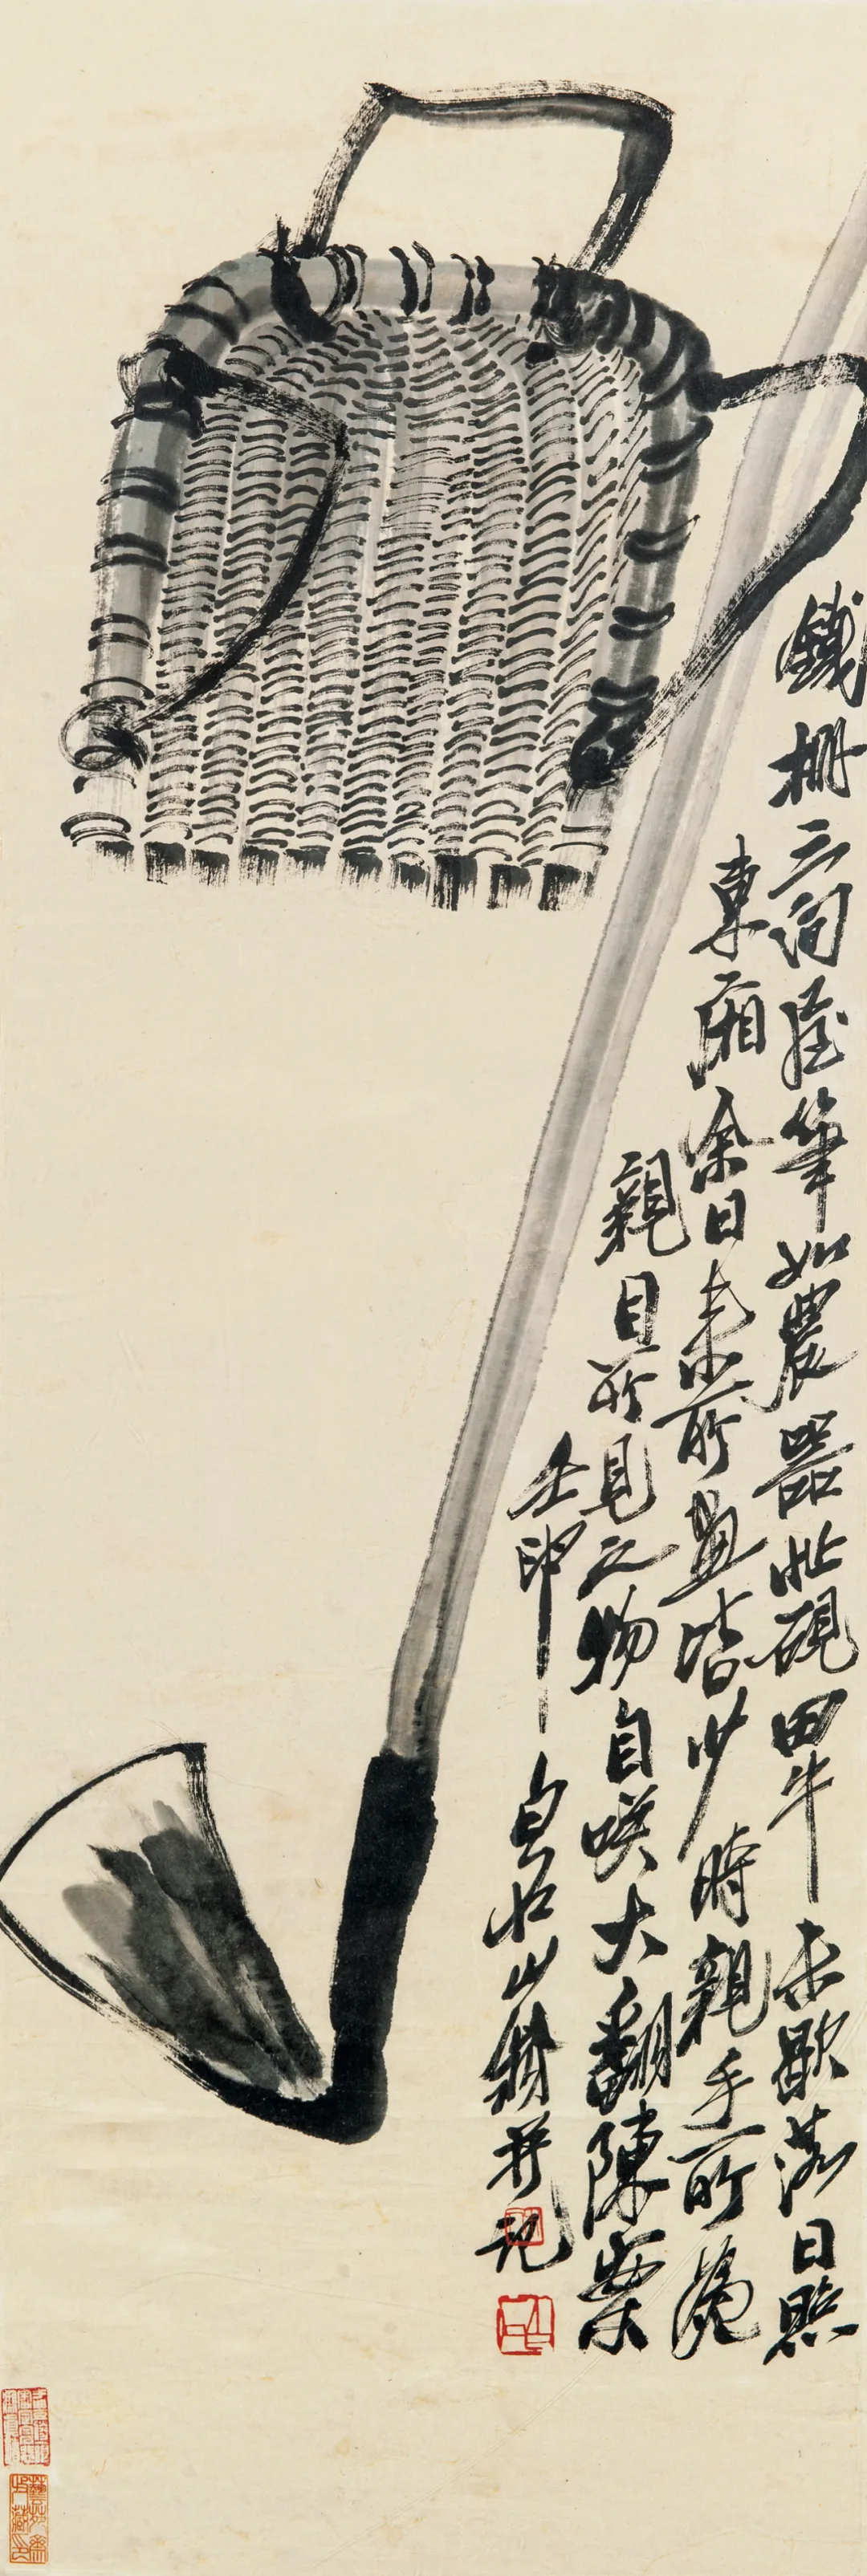 鐵柵三間屋筆如農器忙硯田牛未歇落日照
東廂余日来所畫皆少時親手所為
親目所見之物自咲大翻陳案
壬申白石山翁并記